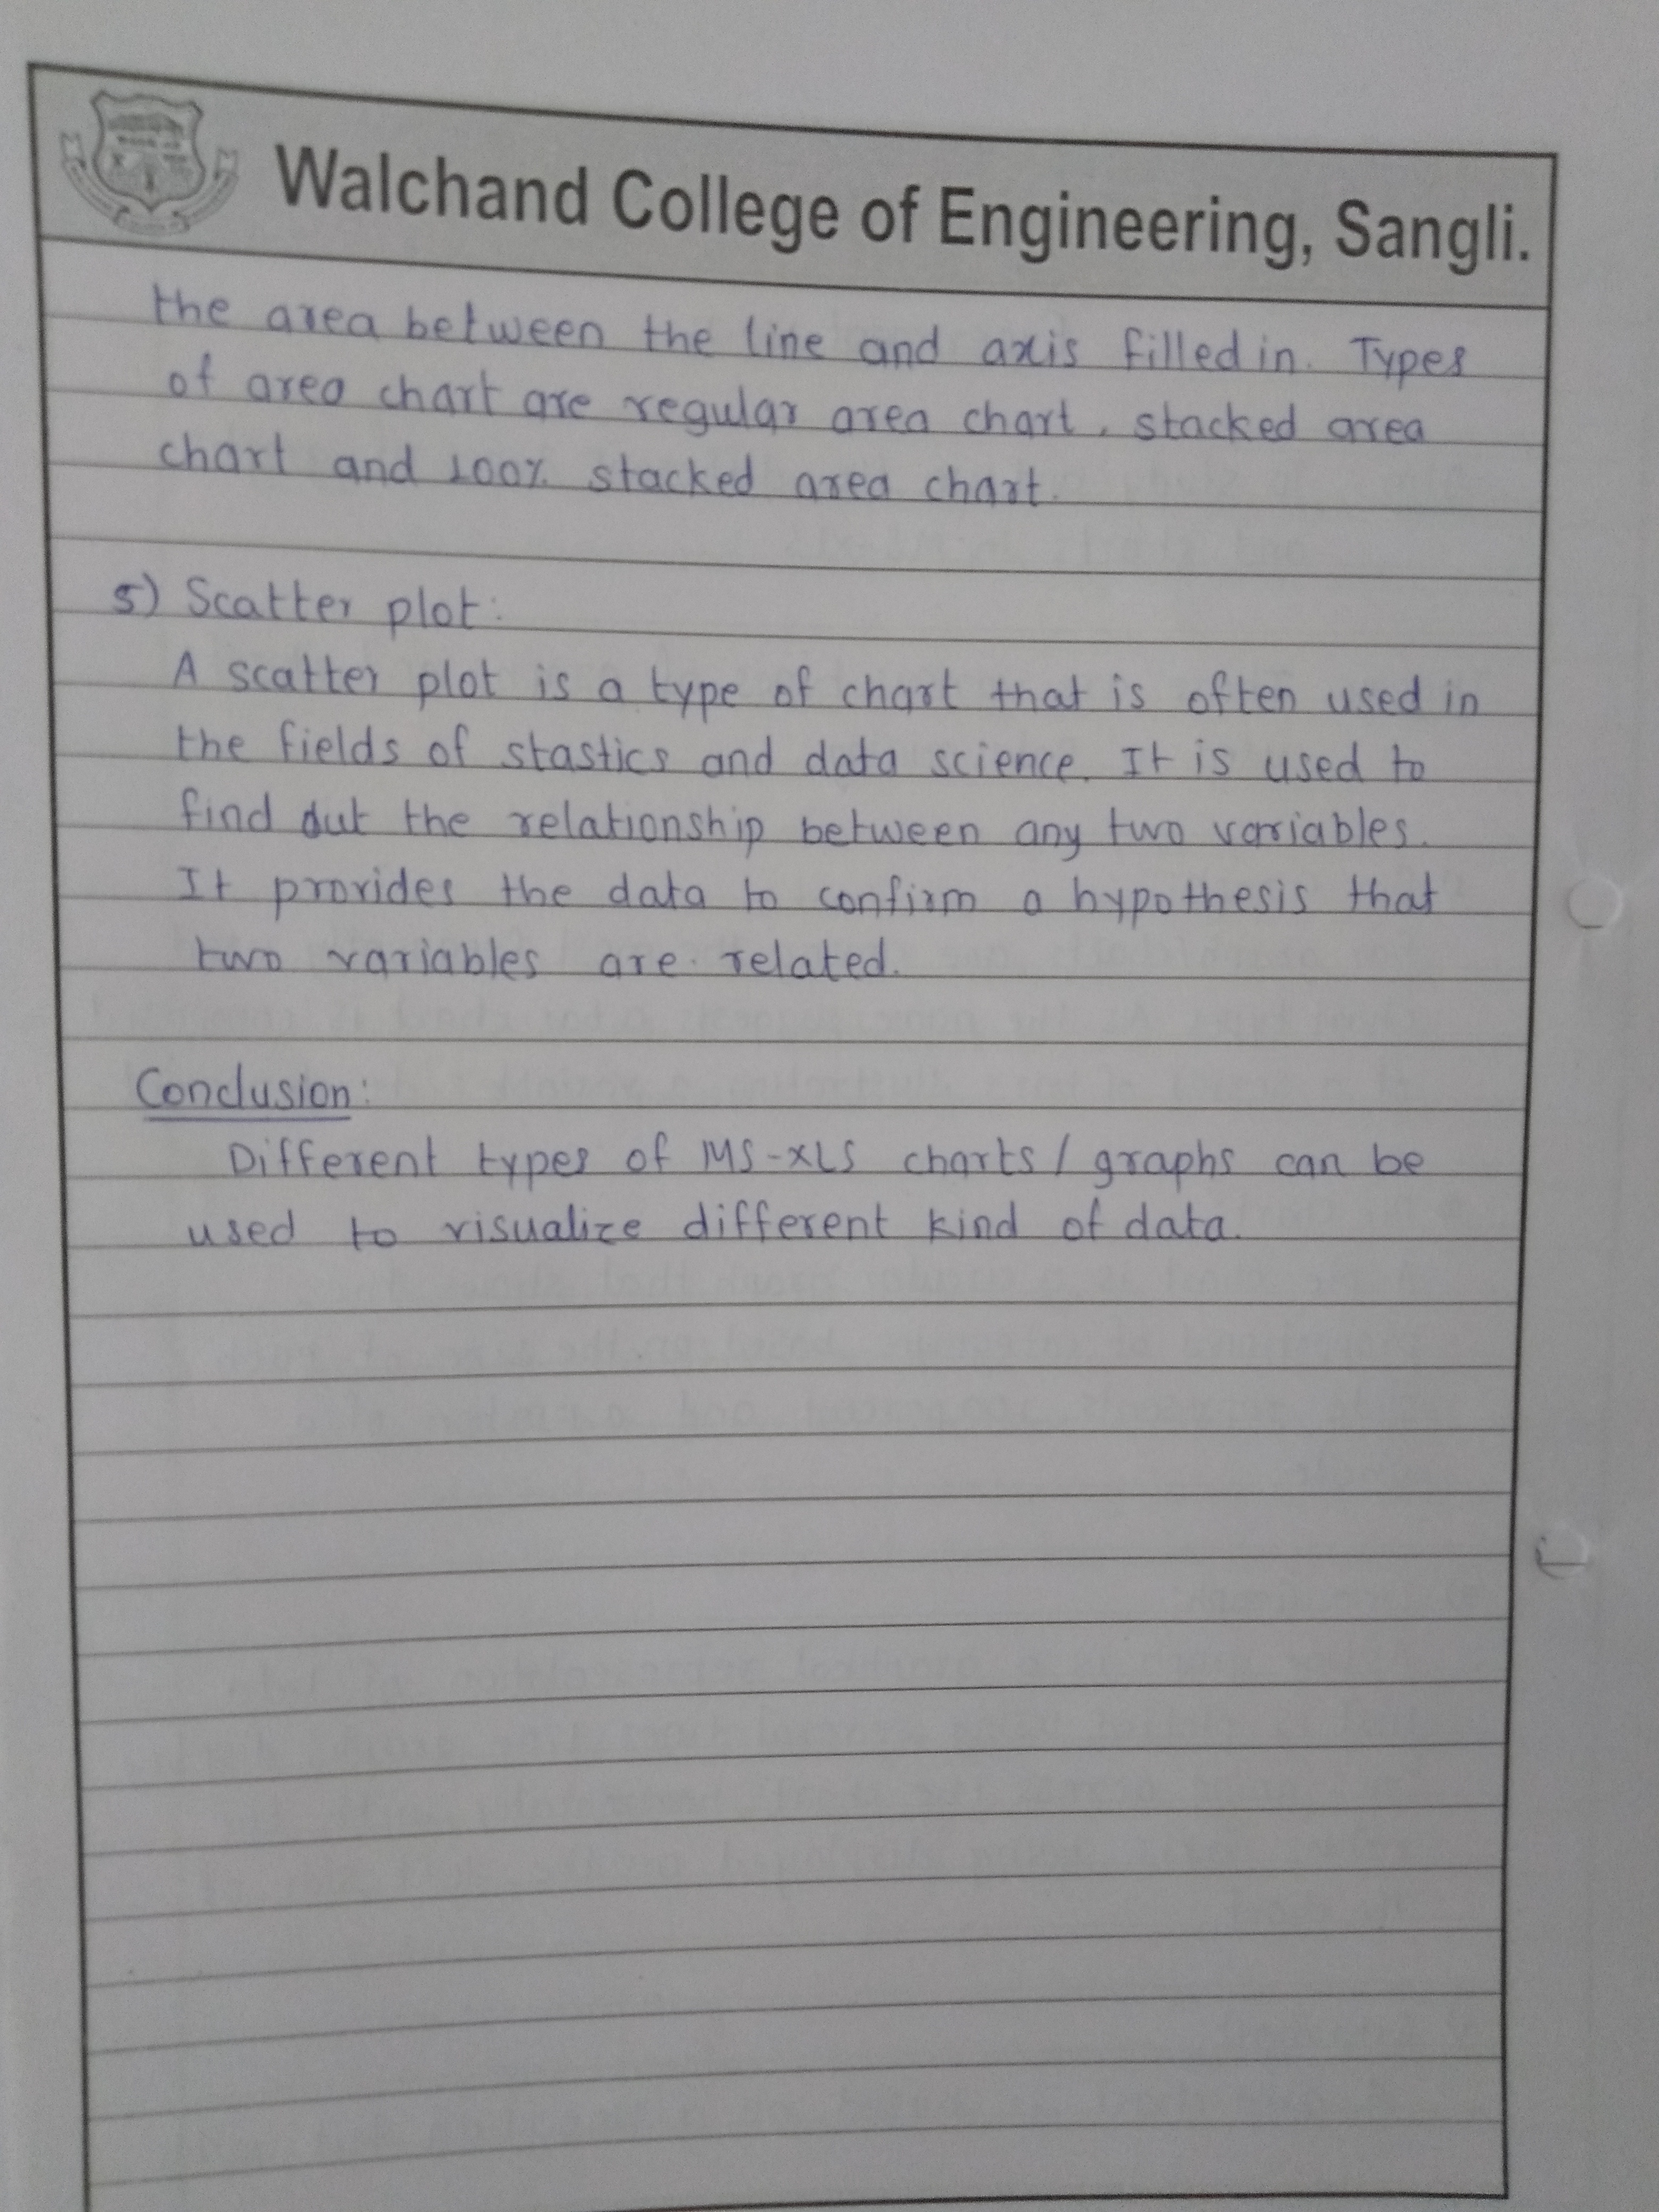 Walchand College of Engineering, Sangli.
the area between the line and axis filled in. Types
of area chart are regular area chart, stacked area
chart and 100% stacked area chart.
5) Scatter plot:
A scatter plot is a type of chart that is often used in
the fields of stastics and data science. It is used to
find out the relationship between any two variables.
It provides the data to confirm a hypothesis that
two variables are related.
Conclusion:
Different types of MS-XLS charts / graphs can be
used to visualize different kind of data.